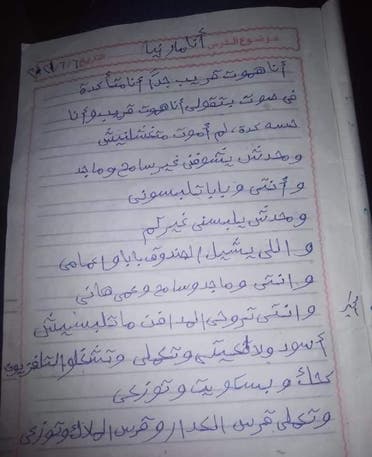 موضوع الدرس أنا ماريا تاريخ
أنا هموت قريب جدًا أنا متأكدة
في صوت بتقولي أنا هموت قريب وأنا
حسه كدة، لم أموت متغسلنيش
ومحدش يشوفني غير سامح وماجد
وأنتي وبابا تلبسوني
ومحدش يلبسني غيركم
واللي يشيل الصندوق بابا واعمامي
وانتي وماجد وسامح وعمي هاني
وانتي تروحي المدافن ماتلبسيش
أسود ولا تعيطي وتشغلوا التلفزيون
كحك وبسكويت وتوزعي
قرس وقرس الملاك وتوزعي